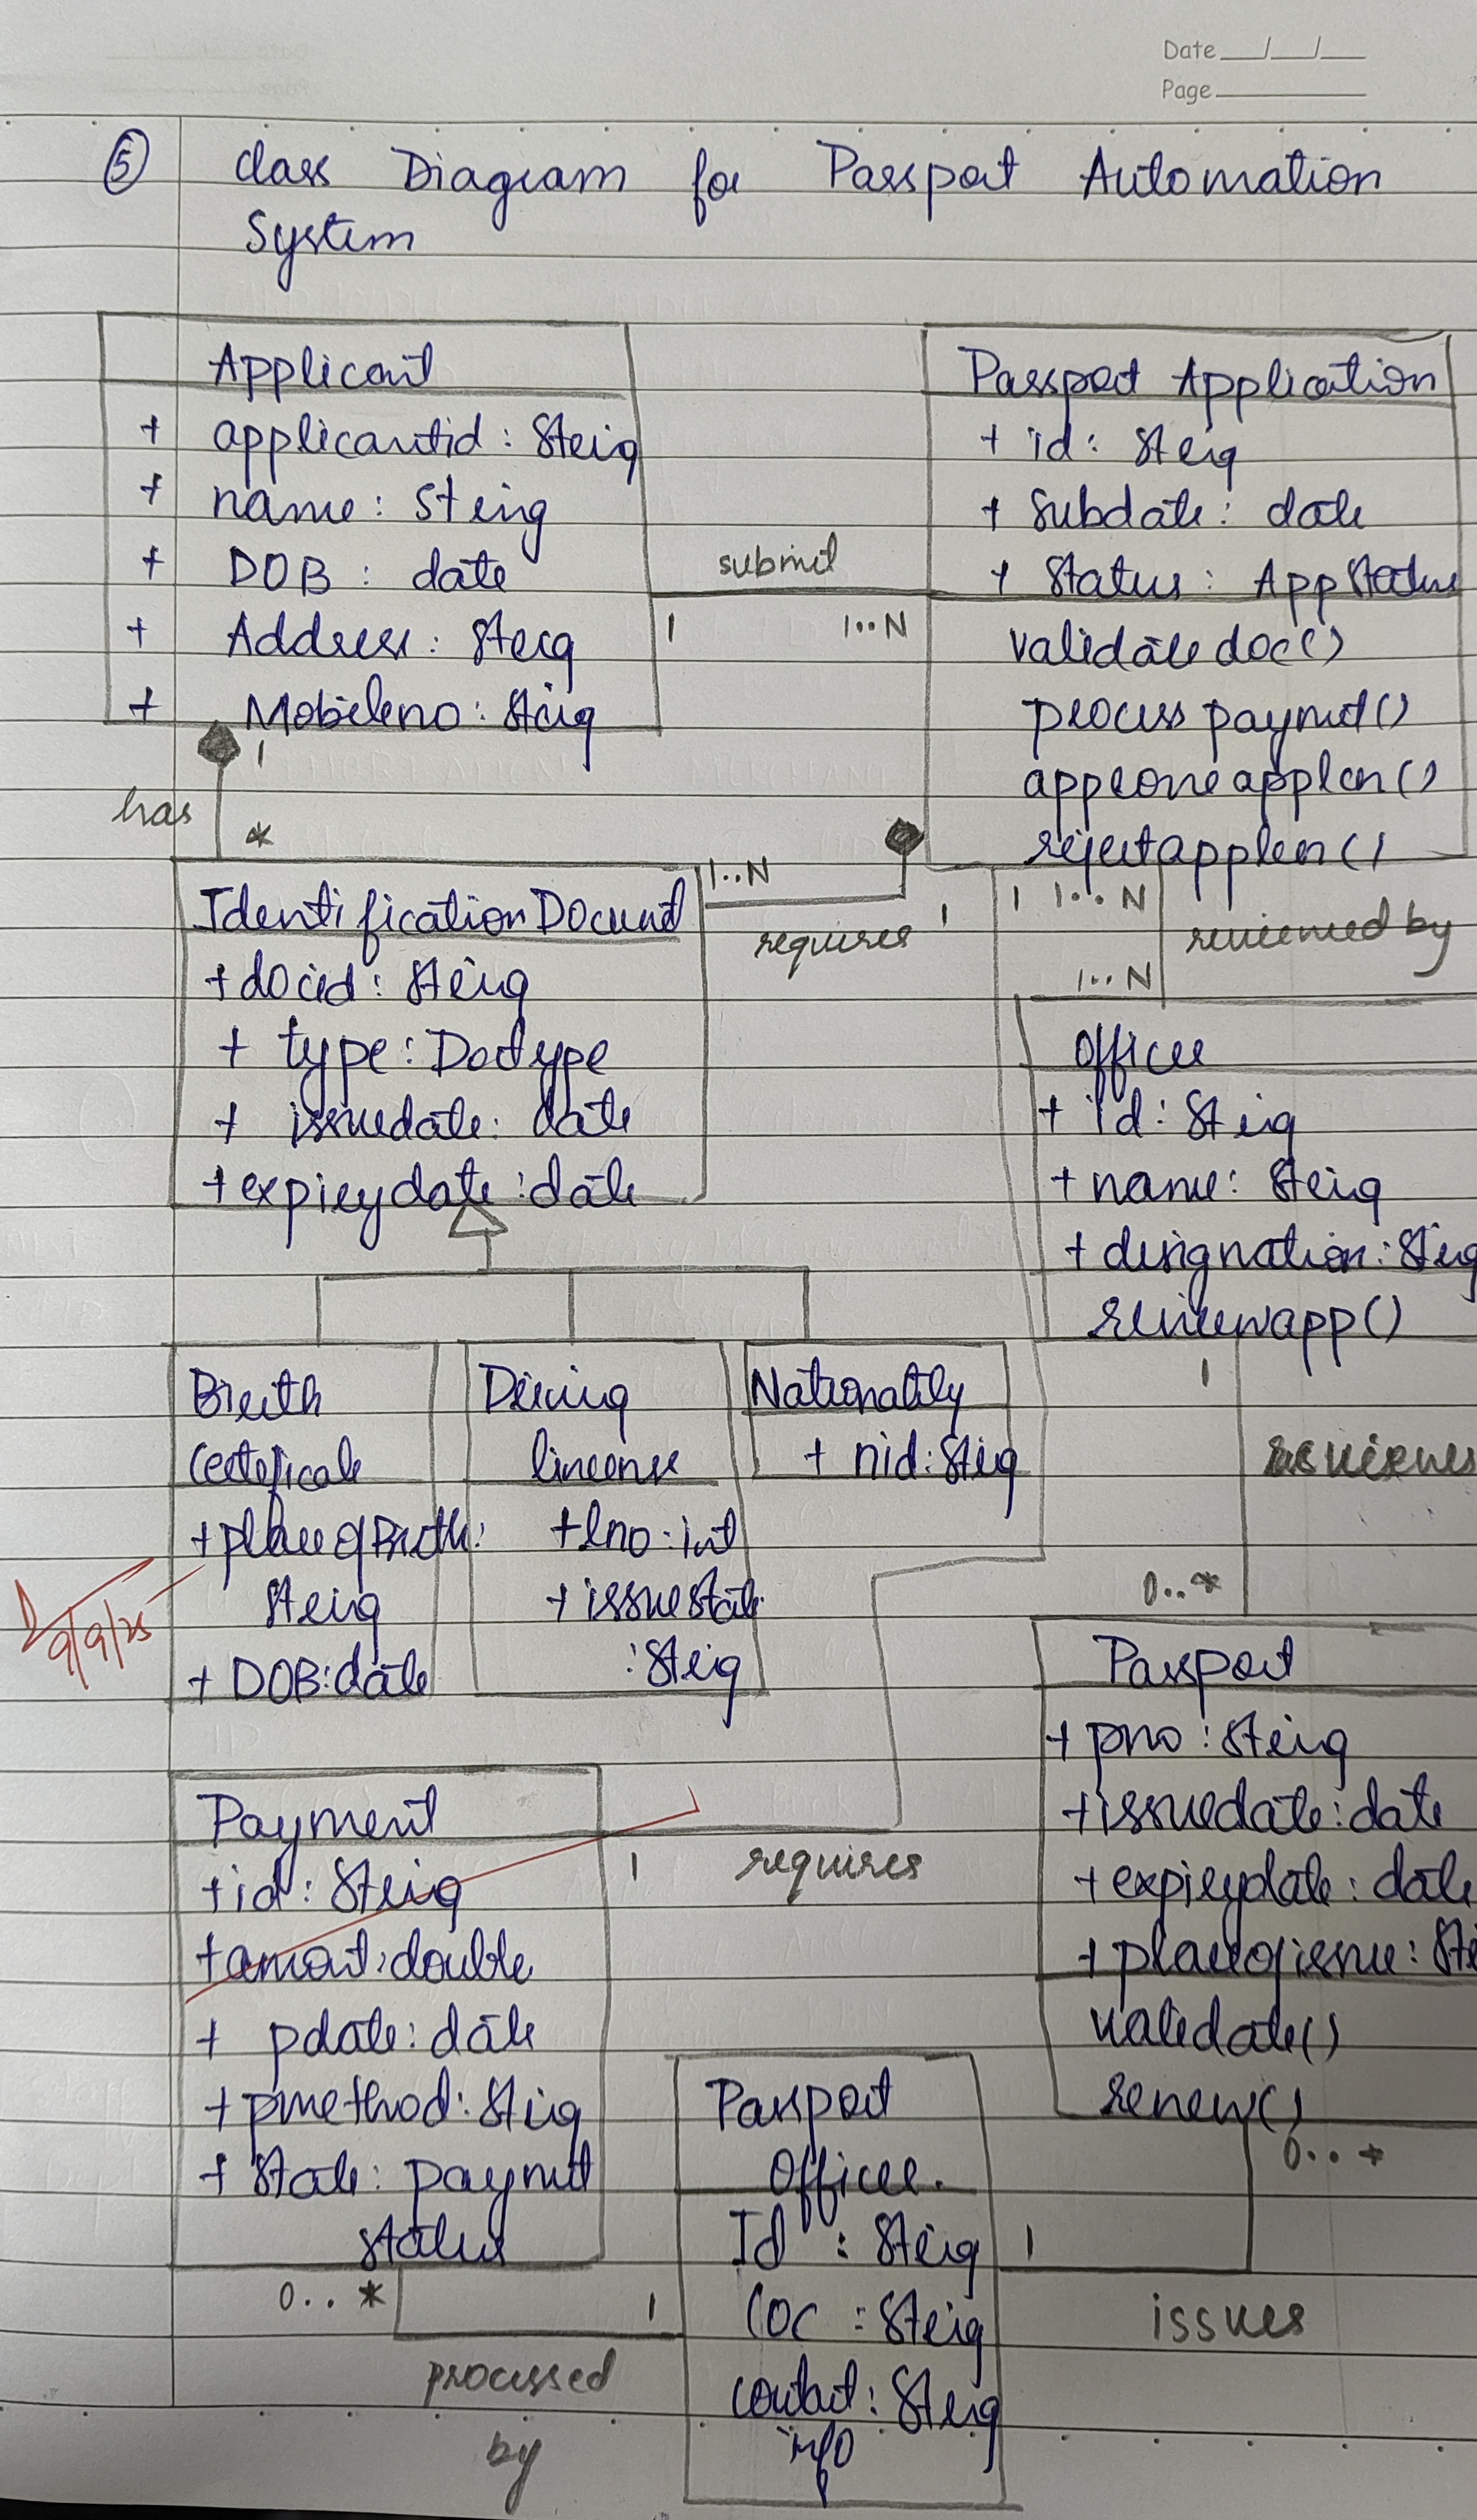 Date __/__/__
Page ______
⑤ Class Diagram for Passport Automation
System
Applicant
+ applicantid : String
+ name : String
+ DOB : date
+ Address : String
+ Mobileno : String
submit
1 1..N
Passport Application
+ id : String
+ Subdate : date
+ Status : App Status
validate doc()
process paymnt()
approve applcn()
reject applcn()
1
has
*
Identification Documnt
+ docid : String
+ type : Doctype
+ issuedate : date
+ expirydate : date
1..N
requires 1
1 1...N
reviewed by
1..N
Officer
+ id : String
+ name : String
+ designation : String
reviewapp()
1
reviews
0..*
Birth
Certificate
+ place of Birth :
String
+ DOB : date
Driving
lincense
+ lno : int
+ issue state
: String
Nationality
+ nid : String
9/9/25
Passport
+ pno : String
+ issuedate : date
+ expirydate : date
+ placeofissue : Str
validate()
renew()
0..*
Payment
+ id : String
+ amont : double
+ pdate : date
+ pmethod : String
+ State : paymnt
status
1 requires
0..* 1
processed
by
Passport
Officer.
Id : String
loc : String
contact : String
info
1
issues